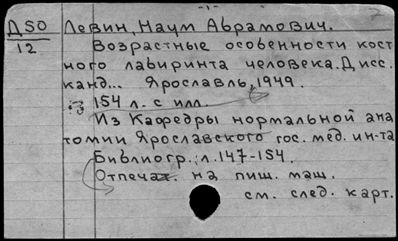 -1-
Д50 Левин, Наум Абрамович.
12 Возрастные особенности кост
ного лабиринта человека. Дисс.
канд... Ярославль, 1949.
154 л. с илл.
Из Кафедры нормальной ана
томии Ярославского гос. мед. ин-та
Библиогр.: л. 147-154.
Отпечат. на пиш. маш.
см. след. карт.